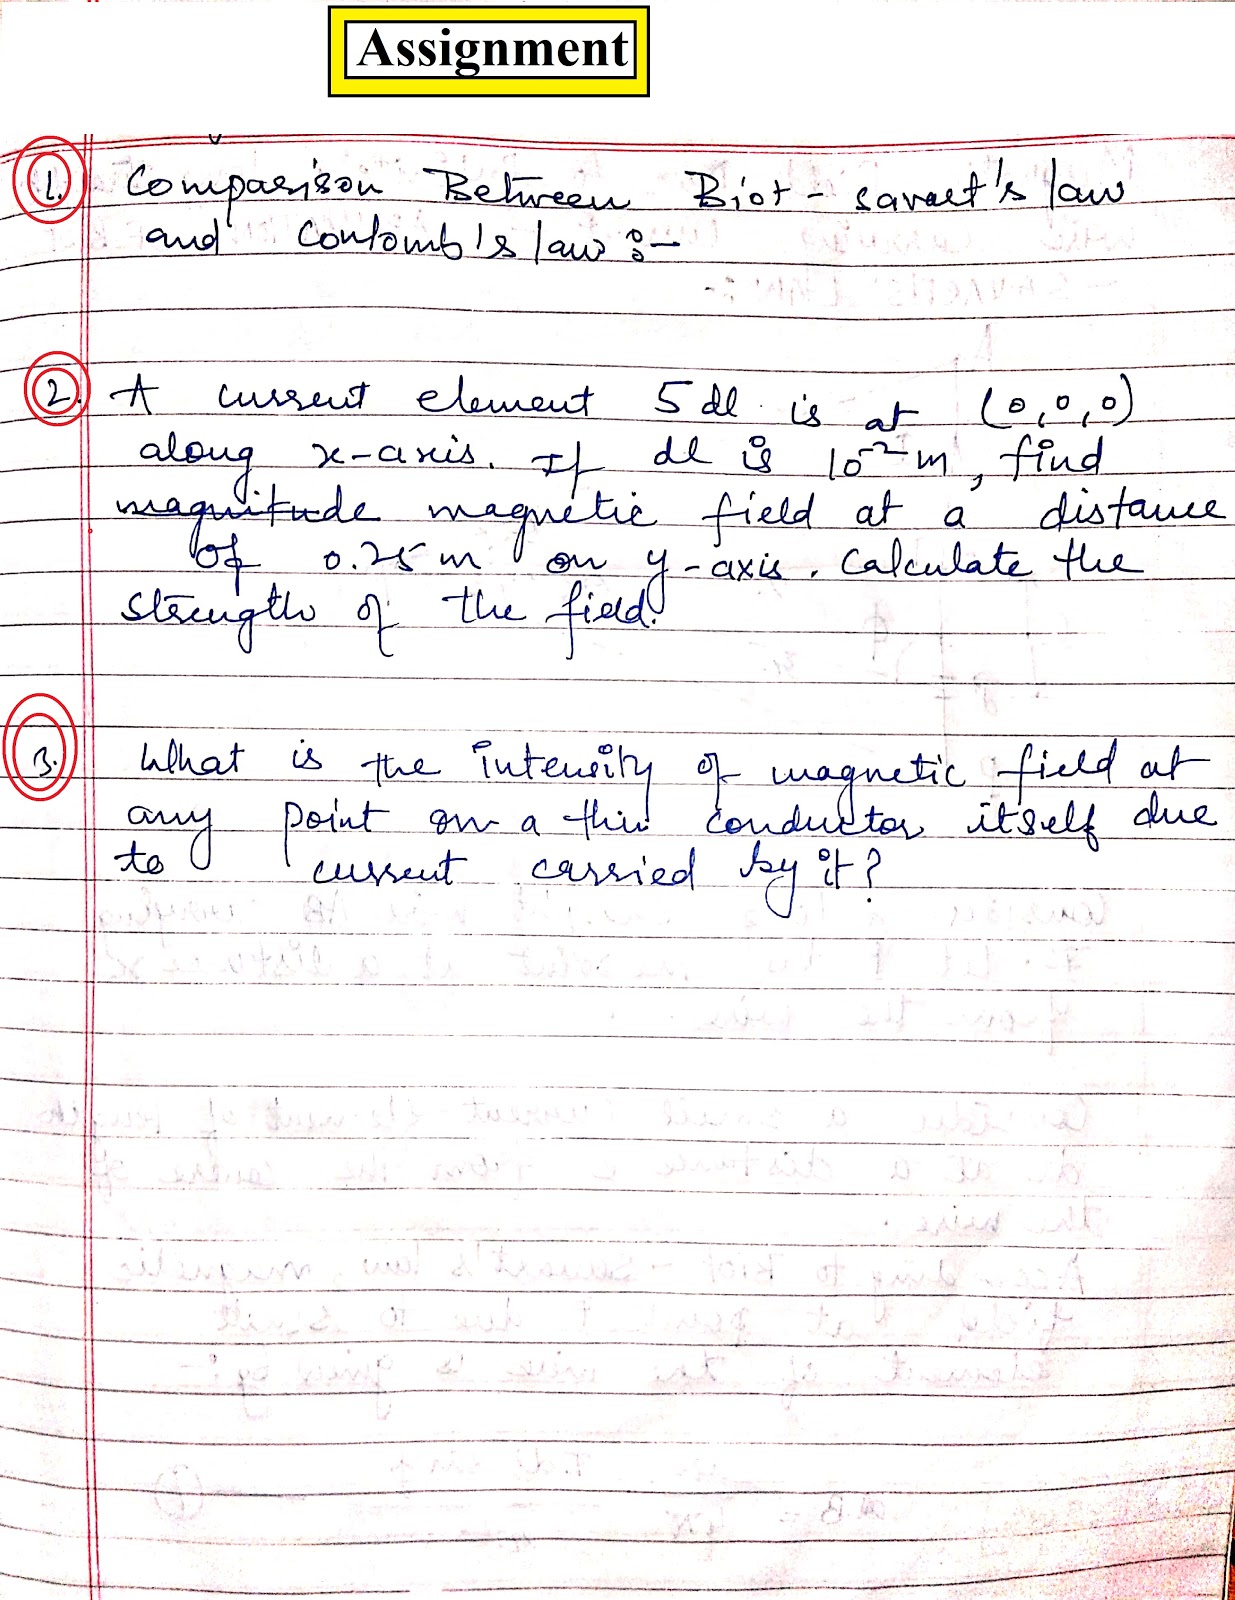 Assignment
1. Comparison Between Biot - savart's law
and Coulomb's law :-
2. A current element 5 dl is at (0,0,0)
along x-axis. If dl is 10⁻² m, find
magnitude magnetic field at a distance
of 0.25 m on y-axis. Calculate the
strength of the field.
3. What is the intensity of magnetic field at
any point on a thin conductor itself due
to current carried by it?